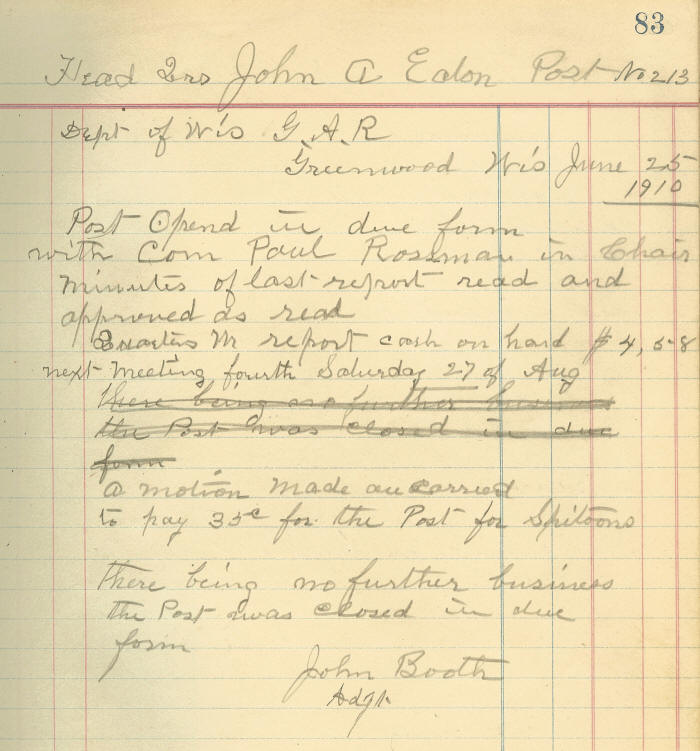 83
Head Qrs John A Eaton Post No 213
Dept of Wis G. A. R
Greenwood Wis June 25
1910
Post Opend in due form
with Com Paul Rossman in Chair
Minutes of last report read and
approved as read
Quarters Mr report cash on hand $ 4,58
next Meeting fourth Saturday 27 of Aug
there being no further business
the Post was closed in due
form
a motion Made an carried
to pay 35c for the Post for Spitoons
there being no further business
the Post was closed in due
form
John Booth
Adgt.